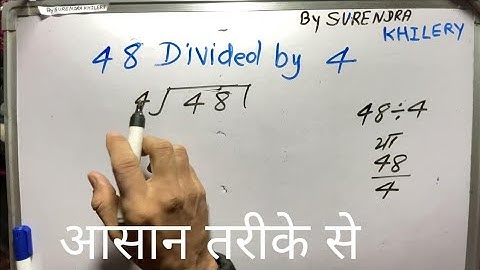 By SURENDRA KHILERY
By SURENDRA
KHILERY
48 Divided by 4
4 48
48÷4
या
48
4
आसान तरीके से